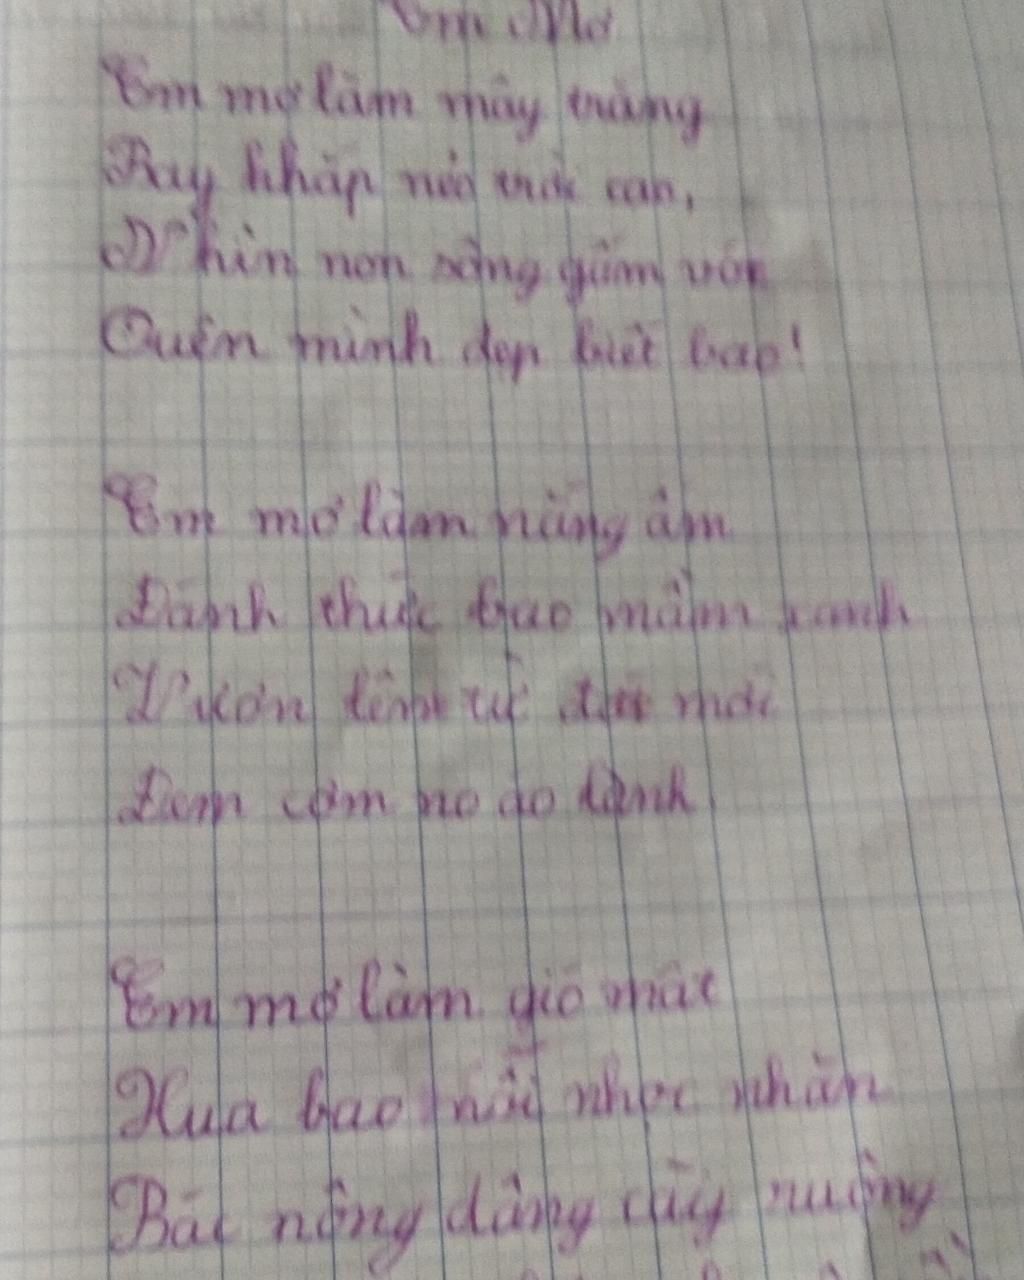 Em Mơ
Em mơ làm mây trắng
Bay khắp nẻo trời cao,
Nhìn non sông gấm vóc
Quên mình đẹp biết bao!
Em mơ làm nắng ấm
Đánh thức bao mầm xanh
Vươn lên từ đất mới
Đem cơm no áo lành
Em mơ làm gió mát
Xua bao nỗi nhọc nhằn
Bác nông dâng cày ruộng